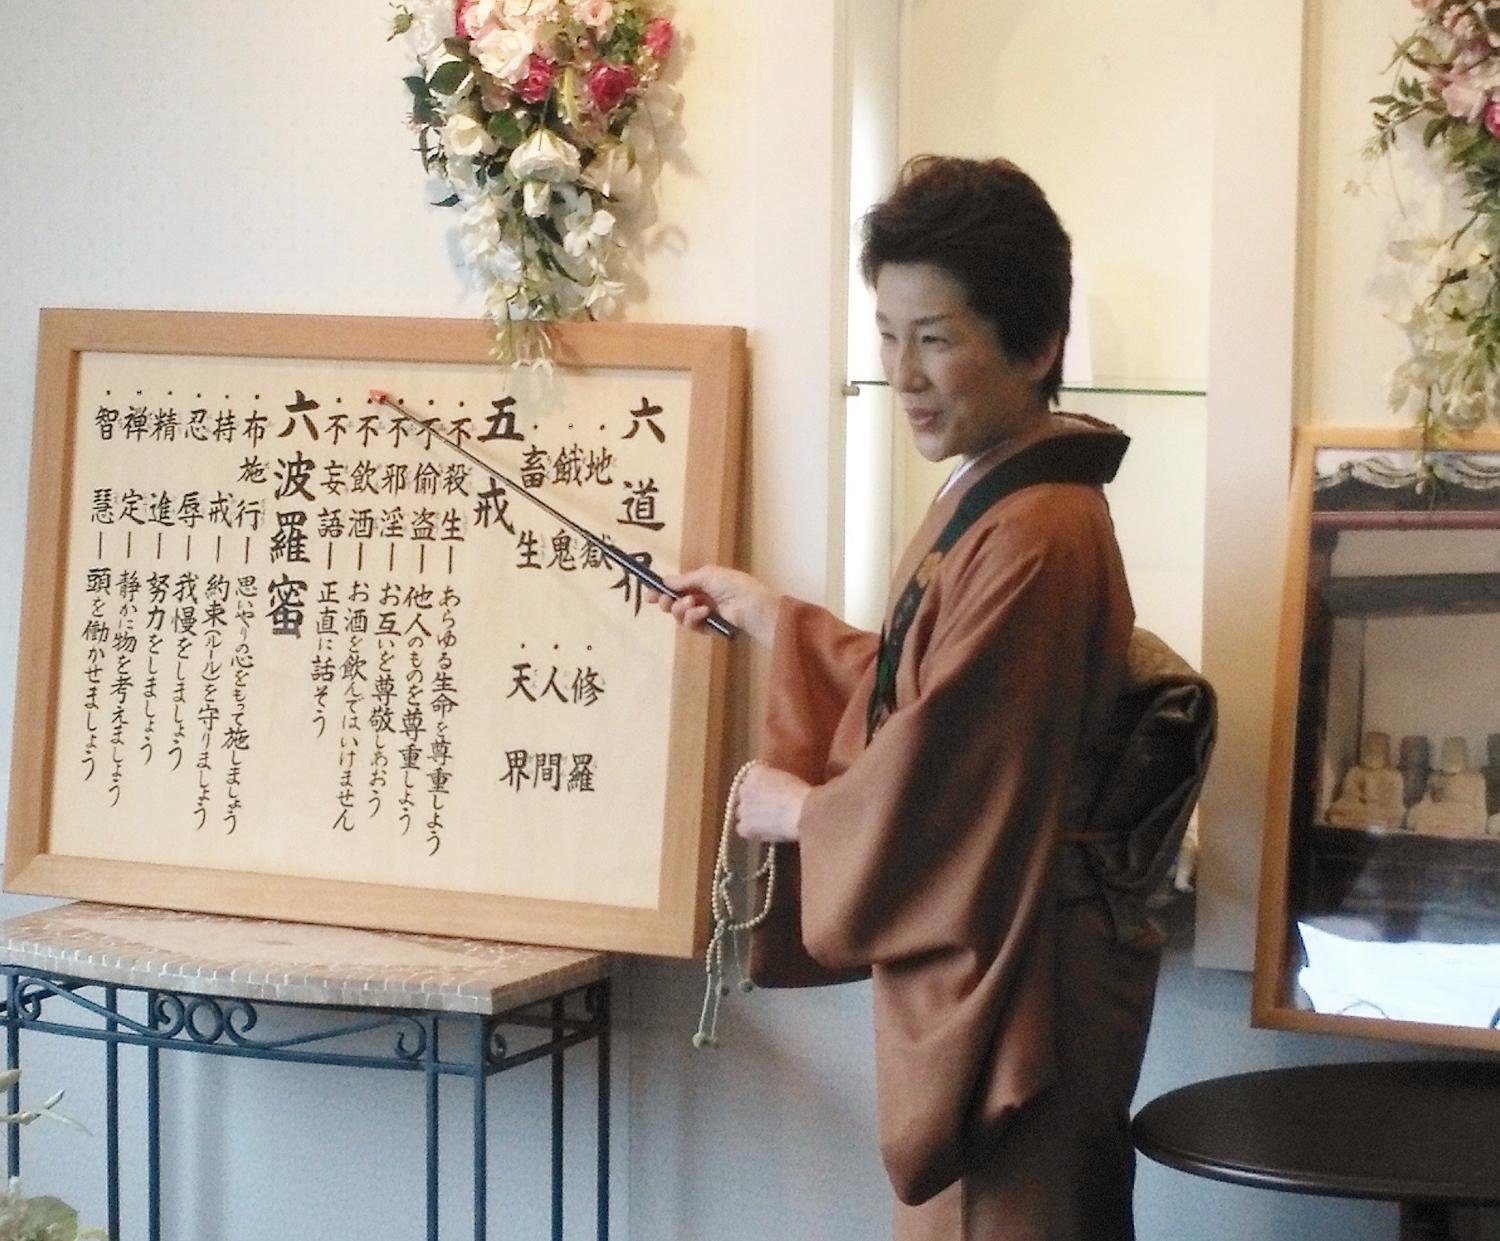 六道界
・地獄
・餓鬼
・畜生
・修羅
・人間
・天界
五戒
・不殺生―あらゆる生命を尊重しよう
・不偸盗―他人のものを尊重しよう
・不邪淫―お互いを尊敬しあおう
・不飲酒―お酒を飲んではいけません
・不妄語―正直に話そう
六波羅蜜
・布施行―思いやりの心をもって施しましょう
・持戒―約束(ルール)を守りましょう
・忍辱―我慢をしましょう
・精進―努力をしましょう
・禅定―静かに物を考えましょう
・智慧―頭を働かせましょう